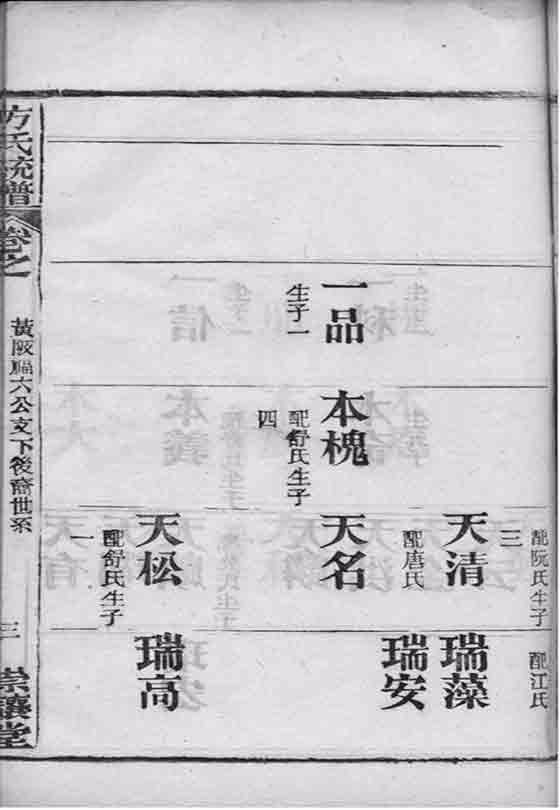 一品
生子一
本槐
配舒氏生子
四
配阮氏生子
三
天清
配唐氏
天名
天松
配舒氏生子
一
配江氏
瑞藻
瑞安
瑞高
方氏統譜
卷之
黃陂福六公支下後裔世系
三
崇讓堂